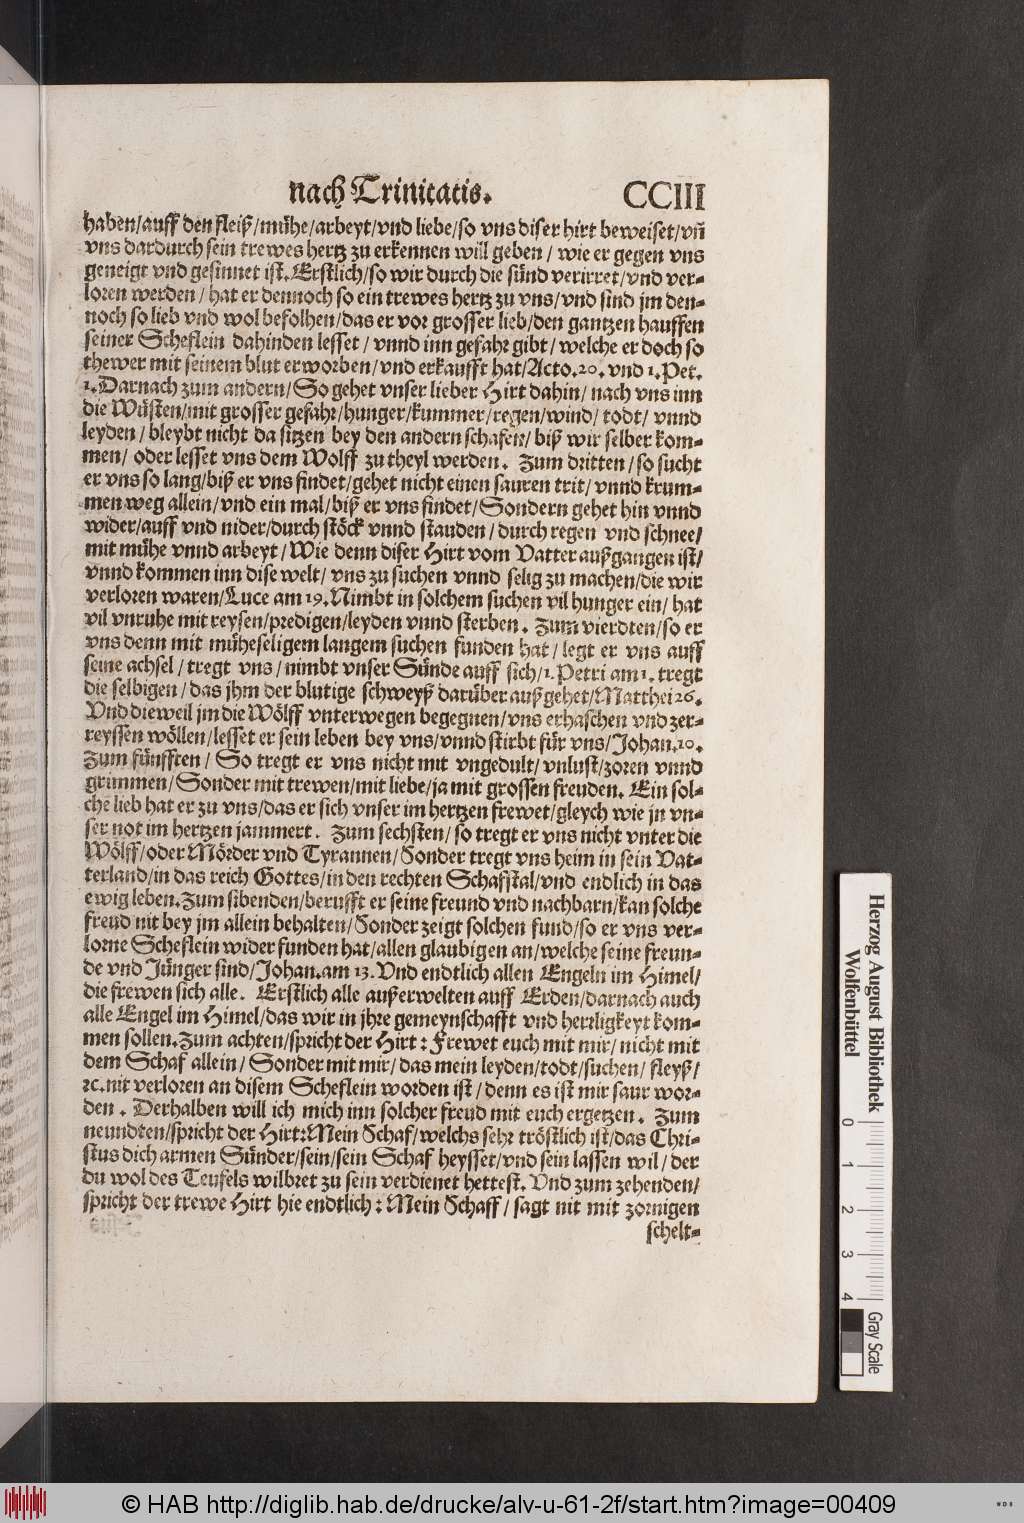 nach Trinitatis. CCIII
haben/auff den fleiß/mühe/arbeyt/vnd liebe/so vns diser hirt beweiset/vñ
vns dardurch sein trewes hertz zu erkennen wil geben / wie er gegen vns
geneigt vnd gesinnet ist. Erstlich/so wir durch die sünd verirret/vnd ver-
loren werden / hat er dennoch so ein trewes hertz zu vns/vnd sind jm den-
noch so lieb vnd wol befolhen/das er vor grosser lieb/den gantzen hauffen
seiner Scheflein dahinden lesset / vnnd inn gefahr gibt/ welche er doch so
thewer mit seinem blut erworben/vnd erkaufft hat/Acto.20. vnd 1. Pet.
1. Darnach zum andern/So gehet vnser lieber Hirt dahin/ nach vns inn
die Wüsten/mit grosser gefahr/hunger/kummer/regen/wind/ todt/ vnnd
leyden / bleybt nicht da sitzen bey den andern schafen/ biß wir selber kom-
men/ oder lesset vns dem Wolff zu theyl werden. Zum dritten / so sucht
er vns so lang/biß er vns findet/gehet nicht einen sauren trit/ vnnd krum-
men weg allein/vnd ein mal/biß er vns findet/Sondern gehet hin vnnd
wider/auff vnd nider/durch stöck vnnd stauden / durch regen vnd schnee/
mit mühe vnnd arbeyt/Wie denn diser Hirt vom Vatter außgangen ist/
vnnd kommen inn dise welt/ vns zu suchen vnnd selig zu machen/die wir
verloren waren/Luce am 19. Nimbt in solchem suchen vil hunger ein/ hat
vil vnruhe mit reysen/predigen/leyden vnnd sterben. Zum vierdten/so er
vns denn mit müheseligem langem suchen funden hat / legt er vns auff
seine achsel / tregt vns / nimbt vnser Sünde auff sich/1. Petri am 1. tregt
die selbigen / das jhm der blutige schweyß darüber außgehet/Matthei 26.
Vnd dieweil jm die Wölff vnterwegen begegnen/vns erhaschen vnd zer-
reyssen wöllen/lesset er sein leben bey vns/vnnd stirbt für vns/Johan.10.
Zum fünfften / So tregt er vns nicht mit vngedult/ vnlust/zoren vnnd
grimmen/Sonder mit trewen/mit liebe/ja mit grossen freuden. Ein sol-
chē lieb hat er zu vns/das er sich vnser im hertzen frewet/gleych wie jn vn-
ser not im hertzen jammert. Zum sechsten/so tregt er vns nicht vnter die
Wölff/oder Mörder vnd Tyrannen/Sonder tregt vns heim in sein Vat-
terland/in das reich Gottes/in den rechten Schafstal/vnd endlich in das
ewig leben. Zum sibenden/berufft er seine freund vnd nachbarn/kan solche
freud nit bey jm allein behalten/Sonder zeigt solchen fund/so er vns ver-
lorne Scheflein wider funden hat/allen glaubigen an/welche seine freun-
de vnd Jünger sind/Johan.am 13. Vnd endtlich allen Engeln im Himel/
die frewen sich alle. Erstlich alle außerwelten auff Erden/darnach auch
alle Engel im Himel/das wir in jhre gemeynschafft vnd herrligkeyt kom-
men sollen. Zum achten/spricht der Hirt: Frewet euch mit mir/ nicht mit
dem Schaf allein/ Sonder mit mir/das mein leyden/todt/suchen/ fleyß/
ꝛc. nit verloren an disem Scheflein worden ist / denn es ist mir saur wor-
den. Derhalben will ich mich inn solcher freud mit euch ergetzen. Zum
neundten/spricht der Hirt: Mein Schaf/welchs sehr tröstlich ist/das Chri-
stus dich armen Sünder/sein/sein Schaf heysset/vnd sein lassen wil/ der
du wol des Teufels wilbret zu sein verdienet hettest. Vnd zum zehenden/
spricht der trewe Hirt hie endtlich: Mein Schaff/ sagt nit mit zornigen
schelt-
Herzog August Bibliothek
Wolfenbüttel
0 1 2 3 4
Gray Scale
© HAB http://diglib.hab.de/drucke/alv-u-61-2f/start.htm?image=00409